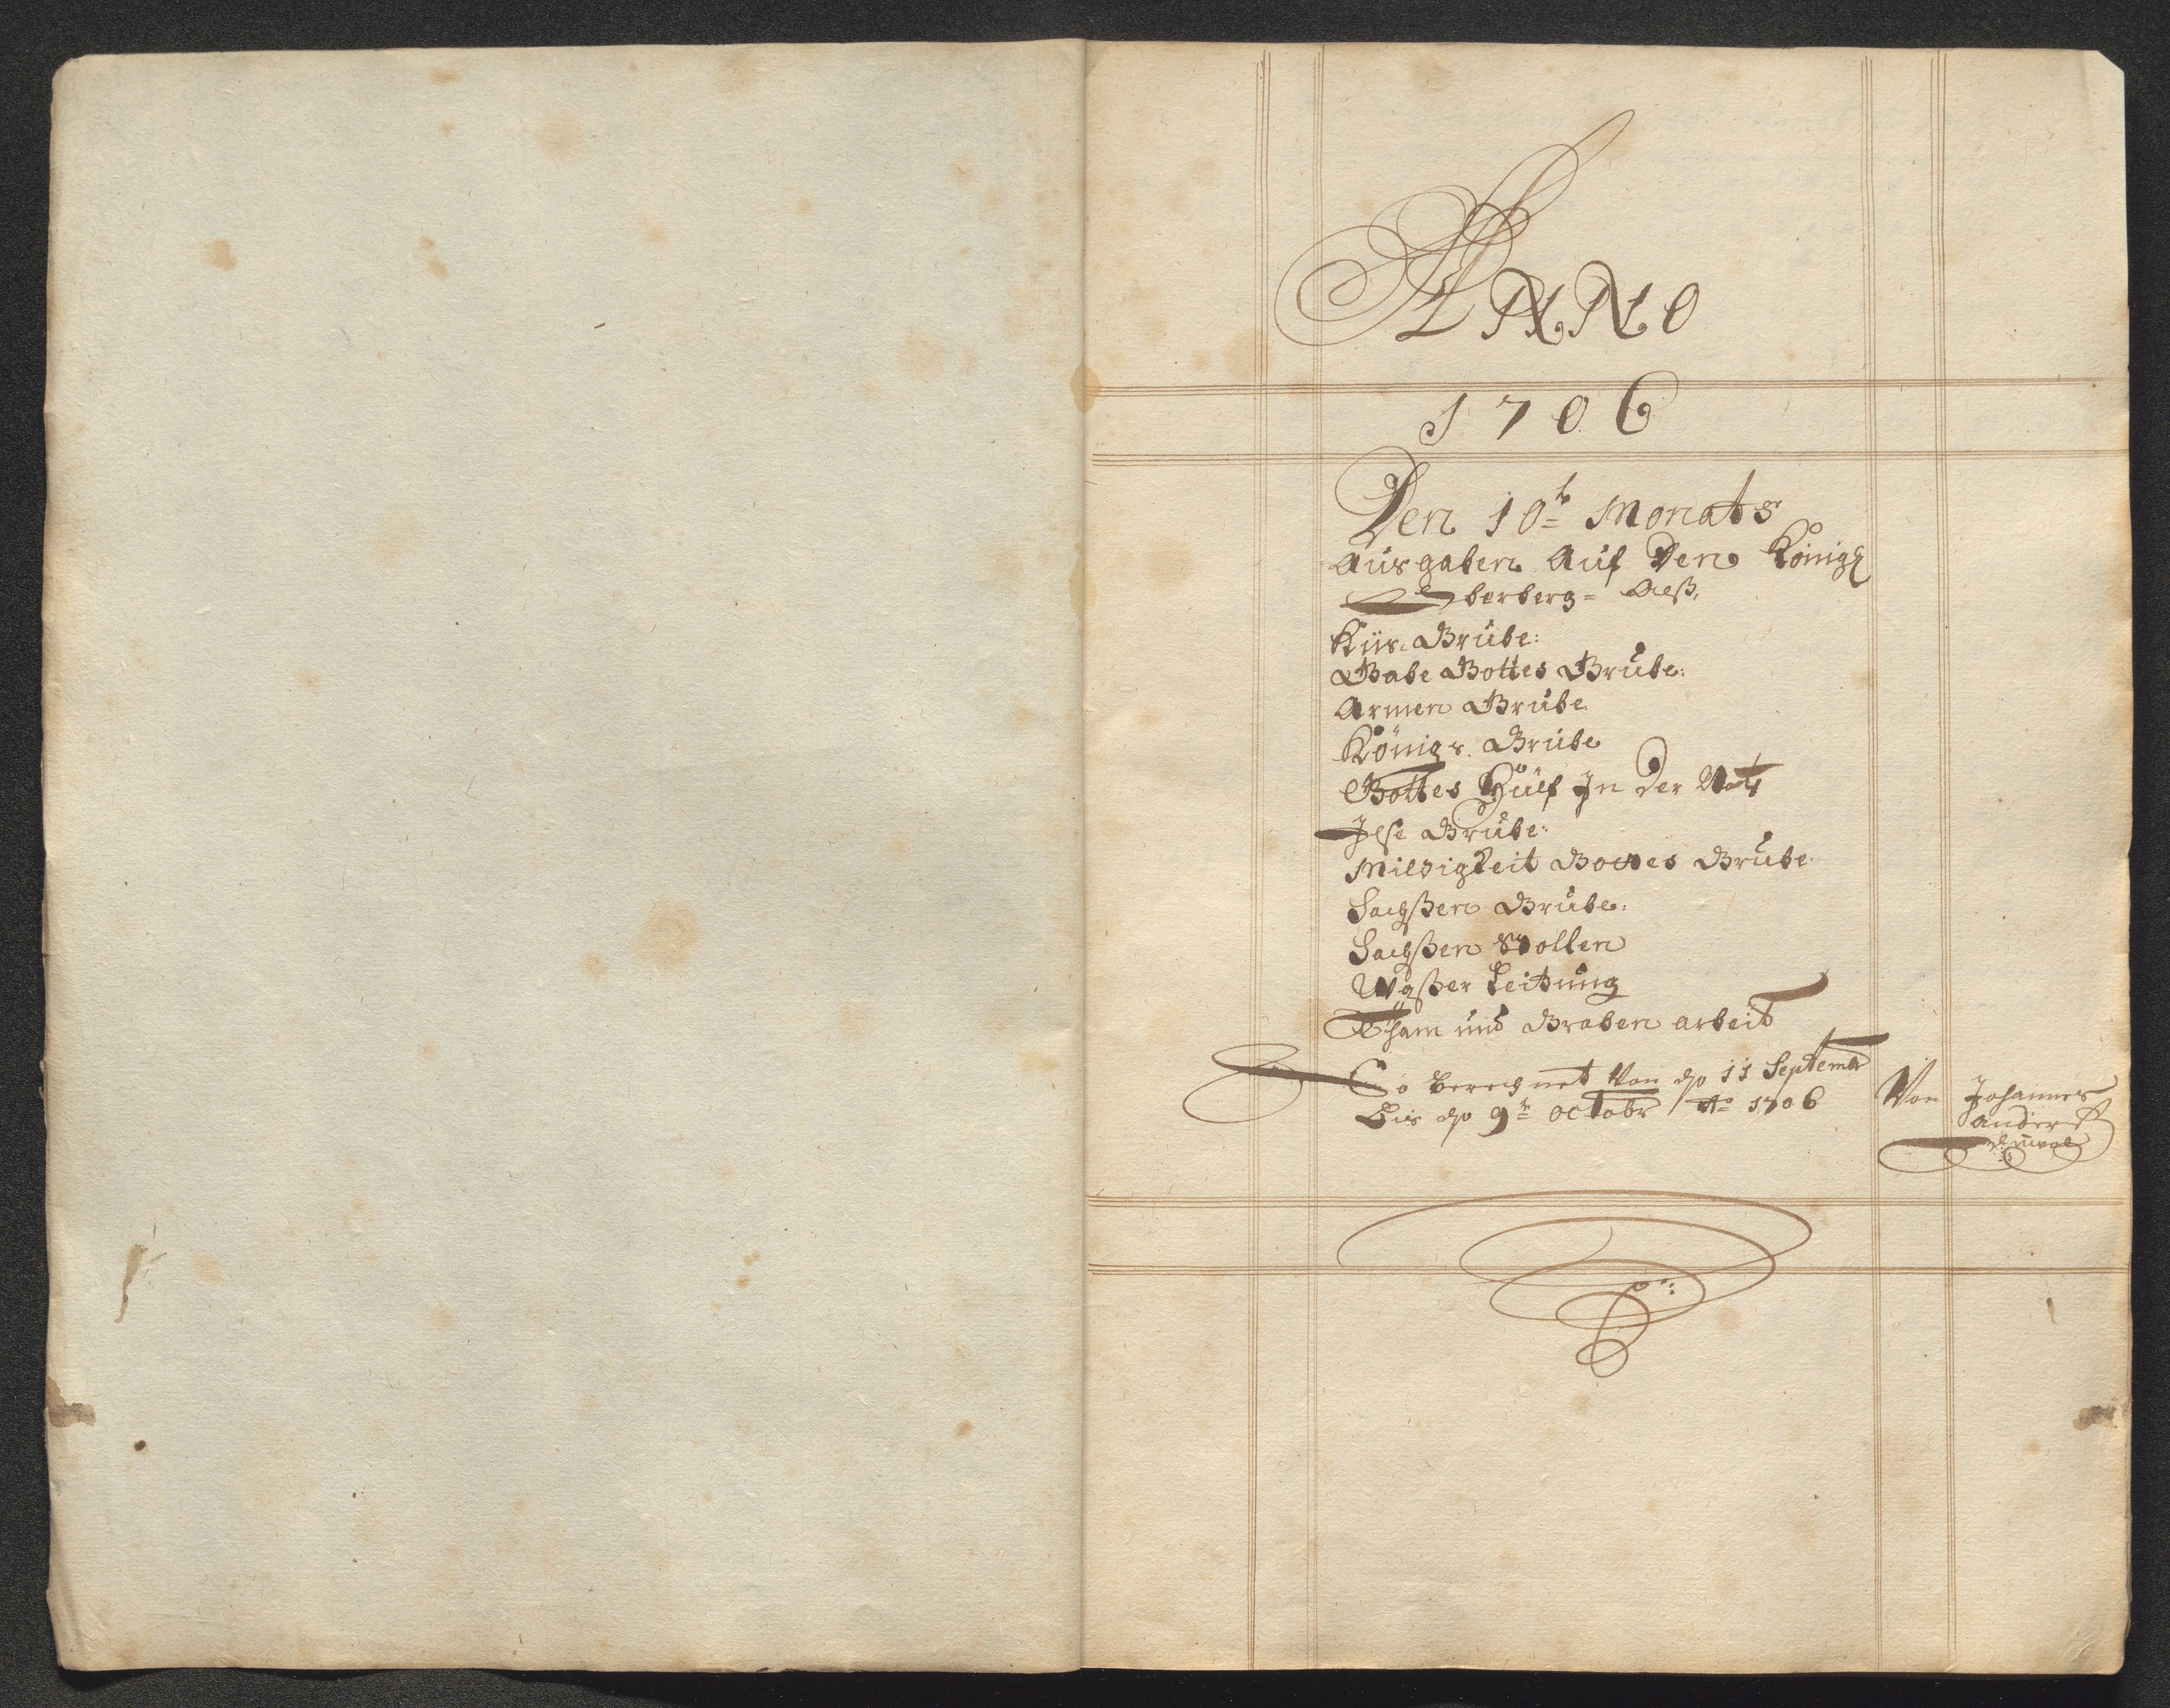 ANNO
1706
Den 10t Monats
Ausgaben Auf Den Königl
berberg=
Grube:
Gabe Gottes Grube:
Armen Grube
Königs Grube
Gottes Hülf In Der Noht
Grube:
Mildigkeit Gottes Grube
Sachßen Grube:
Sachßen Stollen
Waßer Leitung
Tham und Graben arbeit
So berechnet Von 11 Septembr
Bis 9t octobr Ao 1706 Von Johannes
Anders